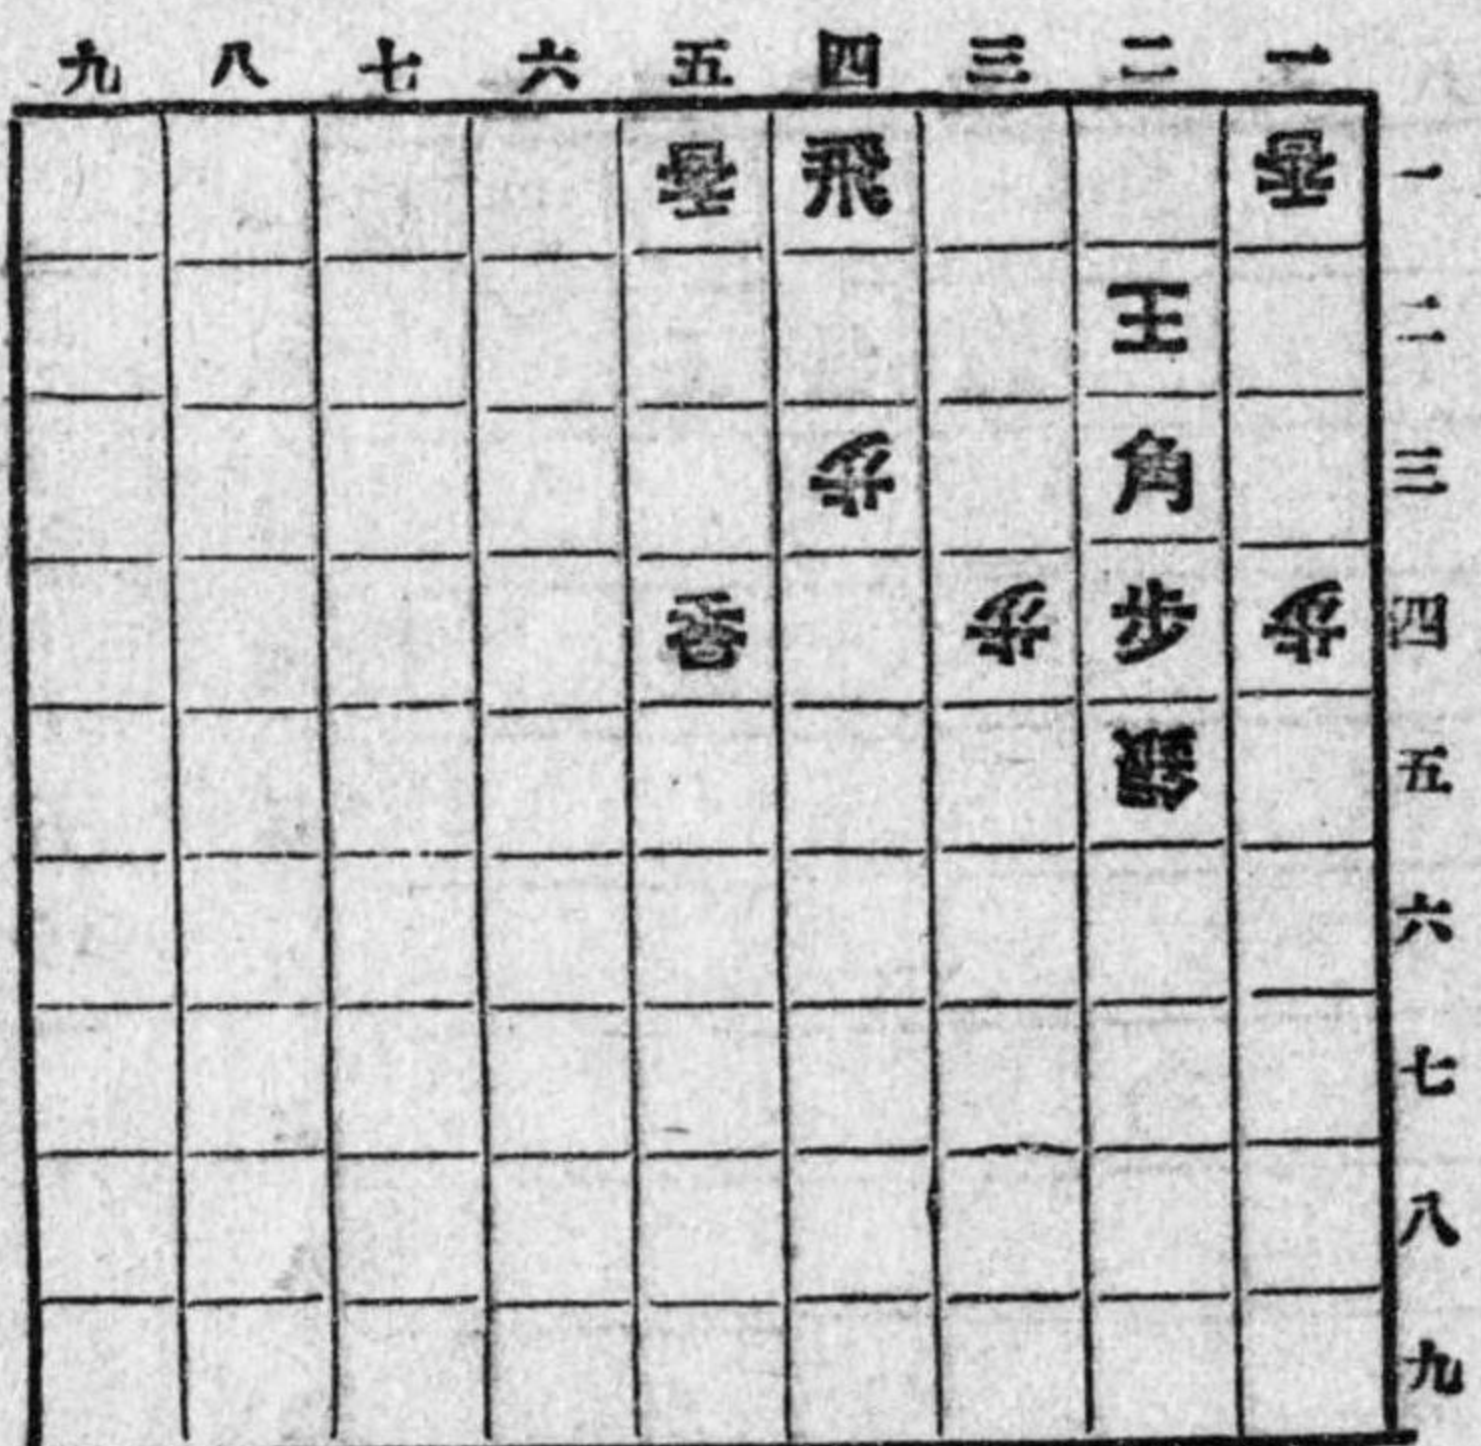 九 八 七 六 五 四 三 二 一
香 飛 香 一
王 二
歩 角 三
香 歩 歩 歩 四
銀 五
六
七
八
九